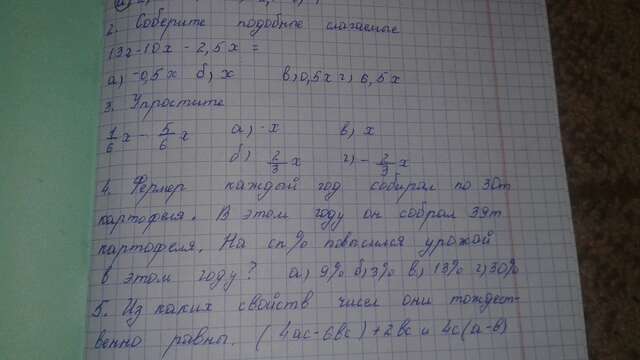 2. Соберите подобные слагаемые
13x - 10x - 2,5x =
а) -0,5x б) x в) 0,5x г) 6,5x
3. Упростите
1/6 x - 5/6 x а) x в) x
б) 2/3 x г) - 2/3 x
4. Фермер каждый год собирал по 30т
картофеля. В этом году он собрал 39т
картофеля. На ск% повысился урожай
в этом году? а) 9% б) 3% в) 13% г) 30%
5. Из каких свойств чисел они тождест-
венно равны. (4ac - 6bc) + 2bc и 4c(a-b)